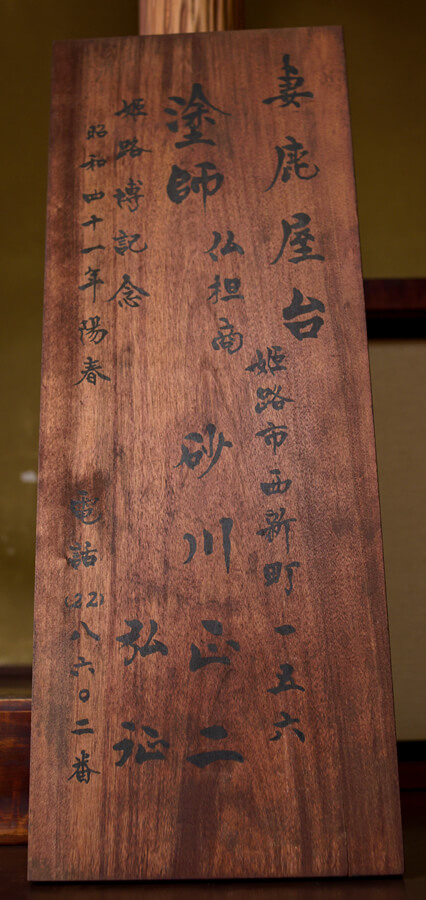 妻鹿屋台
姫路市西新町一五六
塗師
仏担商
砂川正二
弘征
姫路博記念
昭和四十一年陽春
電話(22)八六〇二番